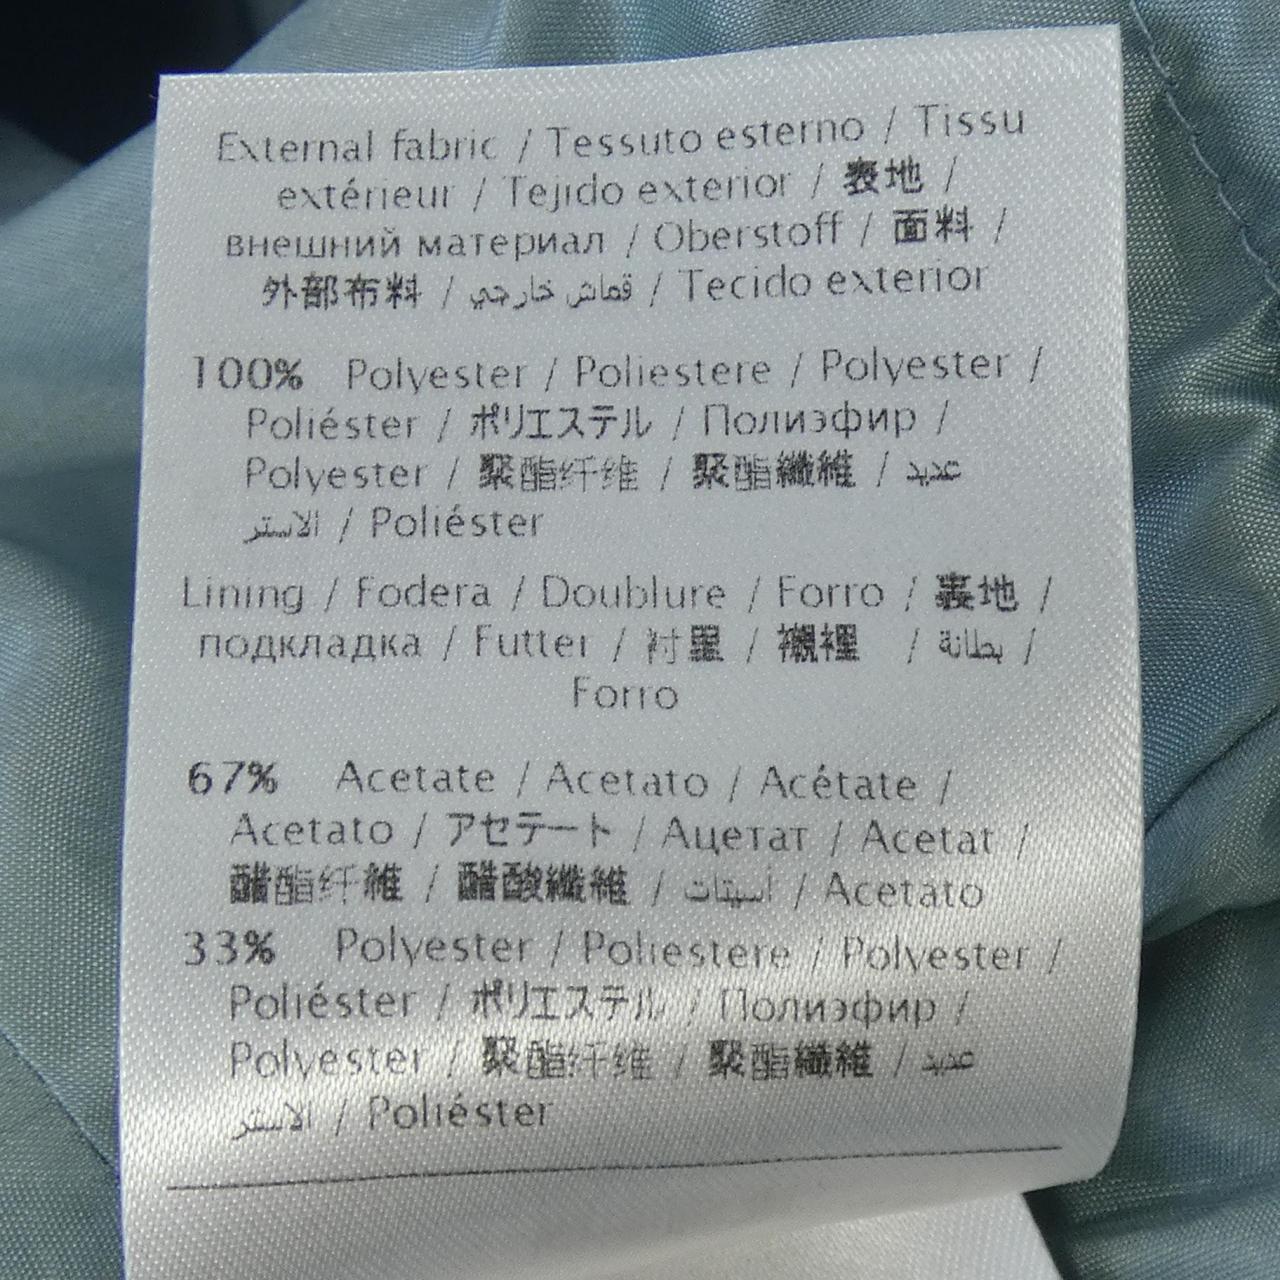 External fabric / Tessuto esterno / Tissu
extérieur / Tejido exterior / 表地 /
внешний материал / Oberstoff / 面料 /
外部布料 / قماش خارجي / Tecido exterior
100% Polyester / Poliestere / Polyester /
Poliéster / ポリエステル / Полиэфир /
Polyester / 聚酯纤维 / 聚酯纖維 / عديد
الاستر / Poliéster
Lining / Fodera / Doublure / Forro / 裏地 /
подкладка / Futter / 衬里 / 襯裡 / بطانة /
Forro
67% Acetate / Acetato / Acétate /
Acetato / アセテート / Ацетат / Acetat /
醋酯纤維 / 醋酸纖維 / أسيتات / Acetato
33% Polyester / Poliestere / Polyester /
Poliéster / ポリエステル / Полиэфир /
Polyester / 聚酯纤维 / 聚酯纖維 / عديد
الاستر / Poliéster